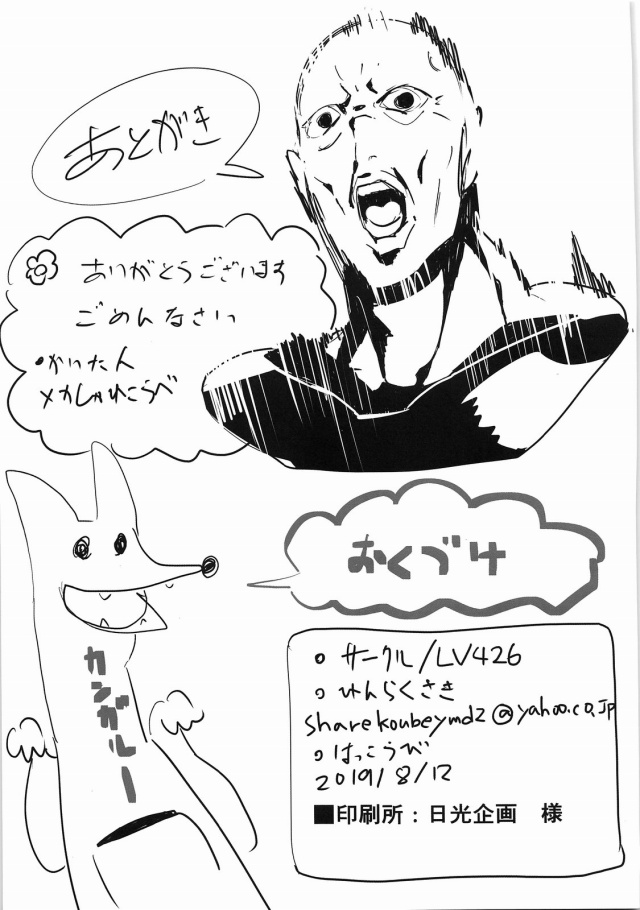 あとがき
ありがとうございます
ごめんなさい
・かいた人
メカしゃれこうべ
おくづけ
カンガルー
○サークル/LV426
○れんらくさき
sharekoubeymdz@yahoo.co.jp
○はっこうび
2019/8/12
■印刷所：日光企画　様